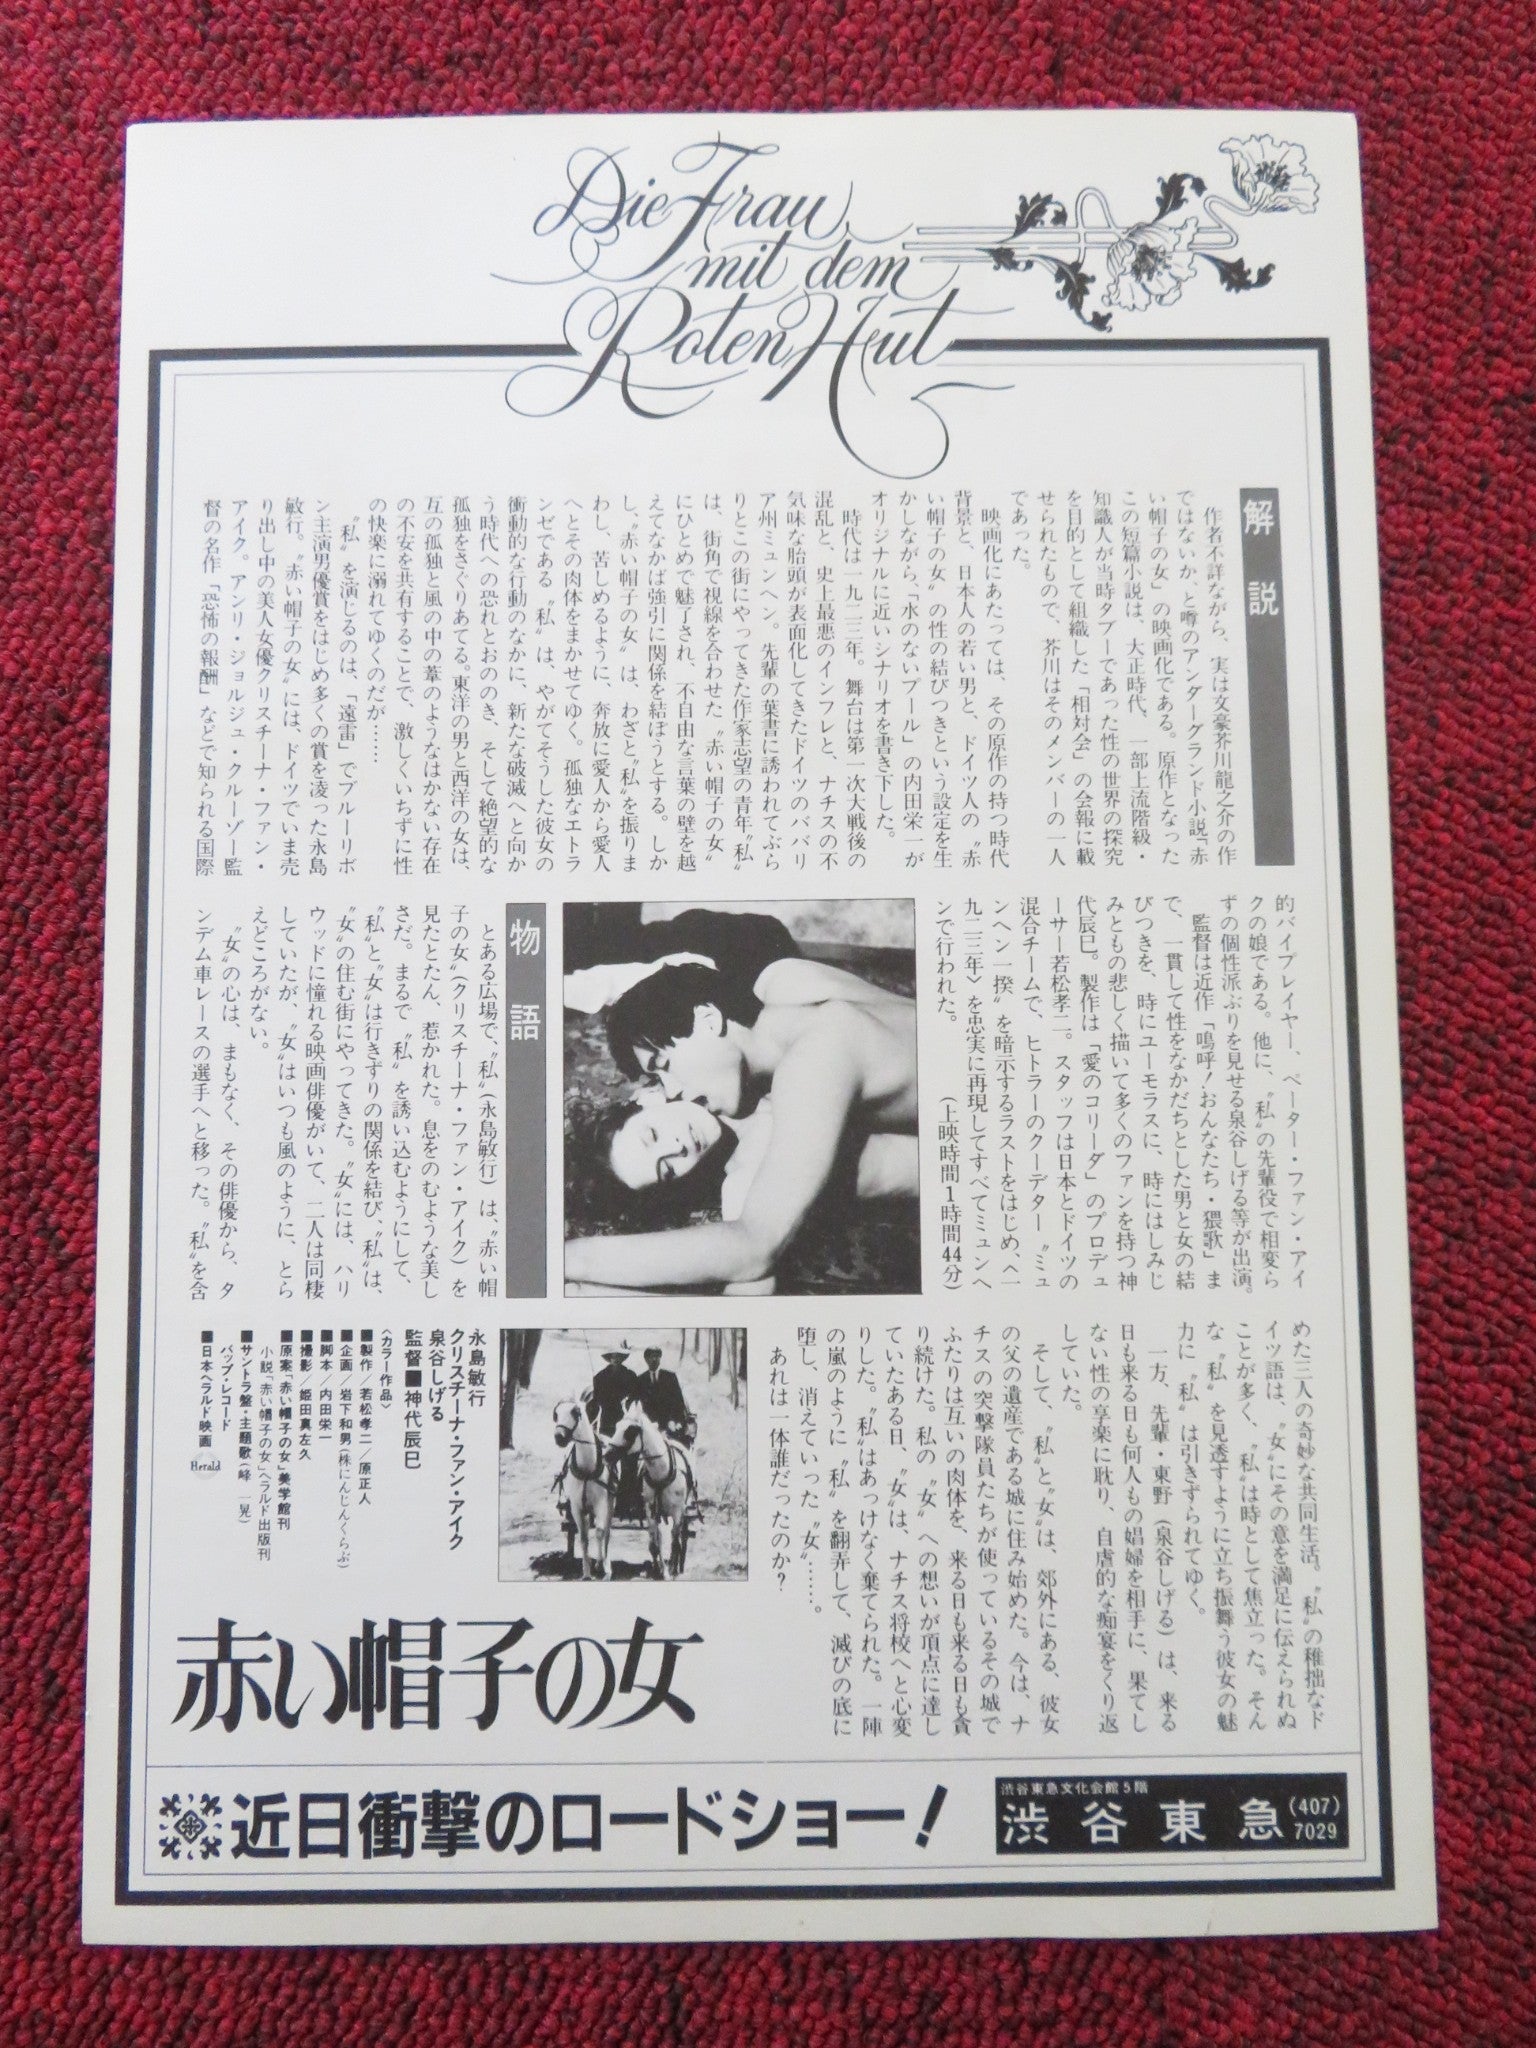 Die Frau
mit dem
Roten Hut
解説
作者不詳ながら、実は文豪芥川龍之介の作
ではないか、と噂のアンダーグランド小説「赤
い帽子の女」の映画化である。原作となった
この短篇小説は、大正時代、一部上流階級・
知識人が当時タブーであった性の世界の探究
を目的として組織した「相対会」の会報に載
せられたもので、芥川はそのメンバーの一人
であった。
映画化にあたっては、その原作の持つ時代
背景と、日本人の若い男と、ドイツ人の〝赤
い帽子の女〟の性の結びつきという設定を生
かしながら、「水のないプール」の内田栄一が
オリジナルに近いシナリオを書き下した。
時代は一九二三年。舞台は第一次大戦後の
混乱と、史上最悪のインフレと、ナチスの不
気味な胎頭が表面化してきたドイツのババリ
ア州ミュンヘン。先輩の葉書に誘われてぶら
りとこの街にやってきた作家志望の青年〝私〟
は、街角で視線を合わせた〝赤い帽子の女〟
にひとめで魅了され、不自由な言葉の壁を越
えてなかば強引に関係を結ぼうとする。しか
し、〝赤い帽子の女〟は、わざと〝私〟を振りま
わし、苦しめるように、奔放に愛人から愛人
へとその肉体をまかせてゆく。孤独なエトラ
ンゼである〝私〟は、やがてそうした彼女の
衝動的な行動のなかに、新たな破滅へと向か
う時代への恐れとおののき、そして絶望的な
孤独をさぐりあてる。東洋の男と西洋の女は、
互の孤独と風の中の葦のようなはかない存在
の不安を共有することで、激しくいちずに性
の快楽に溺れてゆくのだが……
〝私〟を演じるのは、「遠雷」でブルーリボ
ン主演男優賞をはじめ多くの賞を凌った永島
敏行。〝赤い帽子の女〟には、ドイツでいま売
り出し中の美人女優クリスチーナ・ファン・
アイク。アンリ・ジョルジュ・クルーゾー監
督の名作「恐怖の報酬」などで知られる国際
的バイプレイヤー、ペーター・ファン・アイ
クの娘である。他に、〝私〟の先輩役で相変ら
ずの個性派ぶりを見せる泉谷しげる等が出演。
監督は近作「嗚呼！おんなたち・猥歌」ま
で、一貫して性をなかだちとした男と女の結
びつきを、時にユーモラスに、時にはしみじ
みともの悲しく描いて多くのファンを持つ神
代辰巳。製作は「愛のコリーダ」のプロデュ
ーサー若松孝二。スタッフは日本とドイツの
混合チームで、ヒトラーのクーデター〝ミュ
ンヘン一揆〟を暗示するラストをはじめ、〈一
九二三年〉を忠実に再現してすべてミュンヘ
ンで行われた。
(上映時間1時間44分)
物語
とある広場で、〝私〟(永島敏行)は、〝赤い帽
子の女〟(クリスチーナ・ファン・アイク)を
見たとたん、惹かれた。息をのむような美し
さだ。まるで〝私〟を誘い込むようにして、
〝私〟と〝女〟は行きずりの関係を結び、〝私〟は、
〝女〟の住む街にやってきた。〝女〟には、ハリ
ウッドに憧れる映画俳優がいて、二人は同棲
していたが、〝女〟はいつも風のように、とら
えどころがない。
〝女〟の心は、まもなく、その俳優から、タ
ンデム車レースの選手へと移った。〝私〟を含
めた三人の奇妙な共同生活。〝私〟の稚拙なド
イツ語は、〝女〟にその意を満足に伝えられぬ
ことが多く、〝私〟は時として焦立った。そん
な〝私〟を見透すように立ち振舞う彼女の魅
力に〝私〟は引きずられてゆく。
一方、先輩・東野(泉谷しげる)は、来る
日も来る日も何人もの娼婦を相手に、果てし
ない性の享楽に耽り、自虐的な痴宴をくり返
していた。
そして、〝私〟と〝女〟は、郊外にある、彼女
の父の遺産である城に住み始めた。今は、ナ
チスの突撃隊員たちが使っているその城で
ふたりは互いの肉体を、来る日も来る日も貪
り続けた。私の〝女〟への想いが頂点に達し
ていたある日、〝女〟は、ナチス将校へと心変
りした。〝私〟はあっけなく棄てられた。一陣
の嵐のように〝私〟を翻弄して、滅びの底に
堕し、消えていった〝女〟……。
あれは一体誰だったのか？
永島敏行
クリスチーナ・ファン・アイク
泉谷しげる
監督■神代辰巳
〈カラー作品〉
■製作／若松孝二／原正人
■企画／岩下和男(株にんじんくらぶ)
■脚本／内田栄一
■撮影／姫田真左久
■原案「赤い帽子の女」美学館刊
小説「赤い帽子の女」ヘラルド出版刊
■サントラ盤・主題歌(峰一晃)
バップ・レコード
■日本ヘラルド映画 Herald
赤い帽子の女
近日衝撃のロードショー！
渋谷東急文化会館5階
渋谷東急 (407)
7029